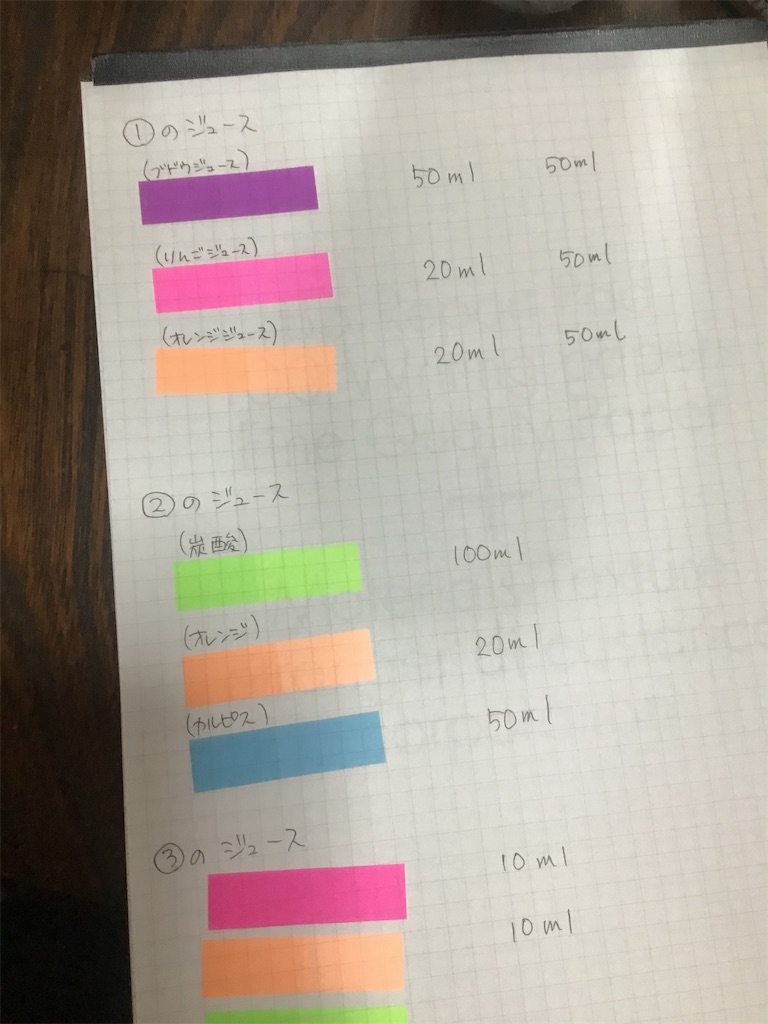 ①のジュース
(ブドウジュース)
50ml 50ml
(りんごジュース)
20ml 50ml
(オレンジジュース)
20ml 50ml
②のジュース
(炭酸)
100ml
(オレンジ)
20ml
(カルピス)
50ml
③のジュース
10ml
10ml